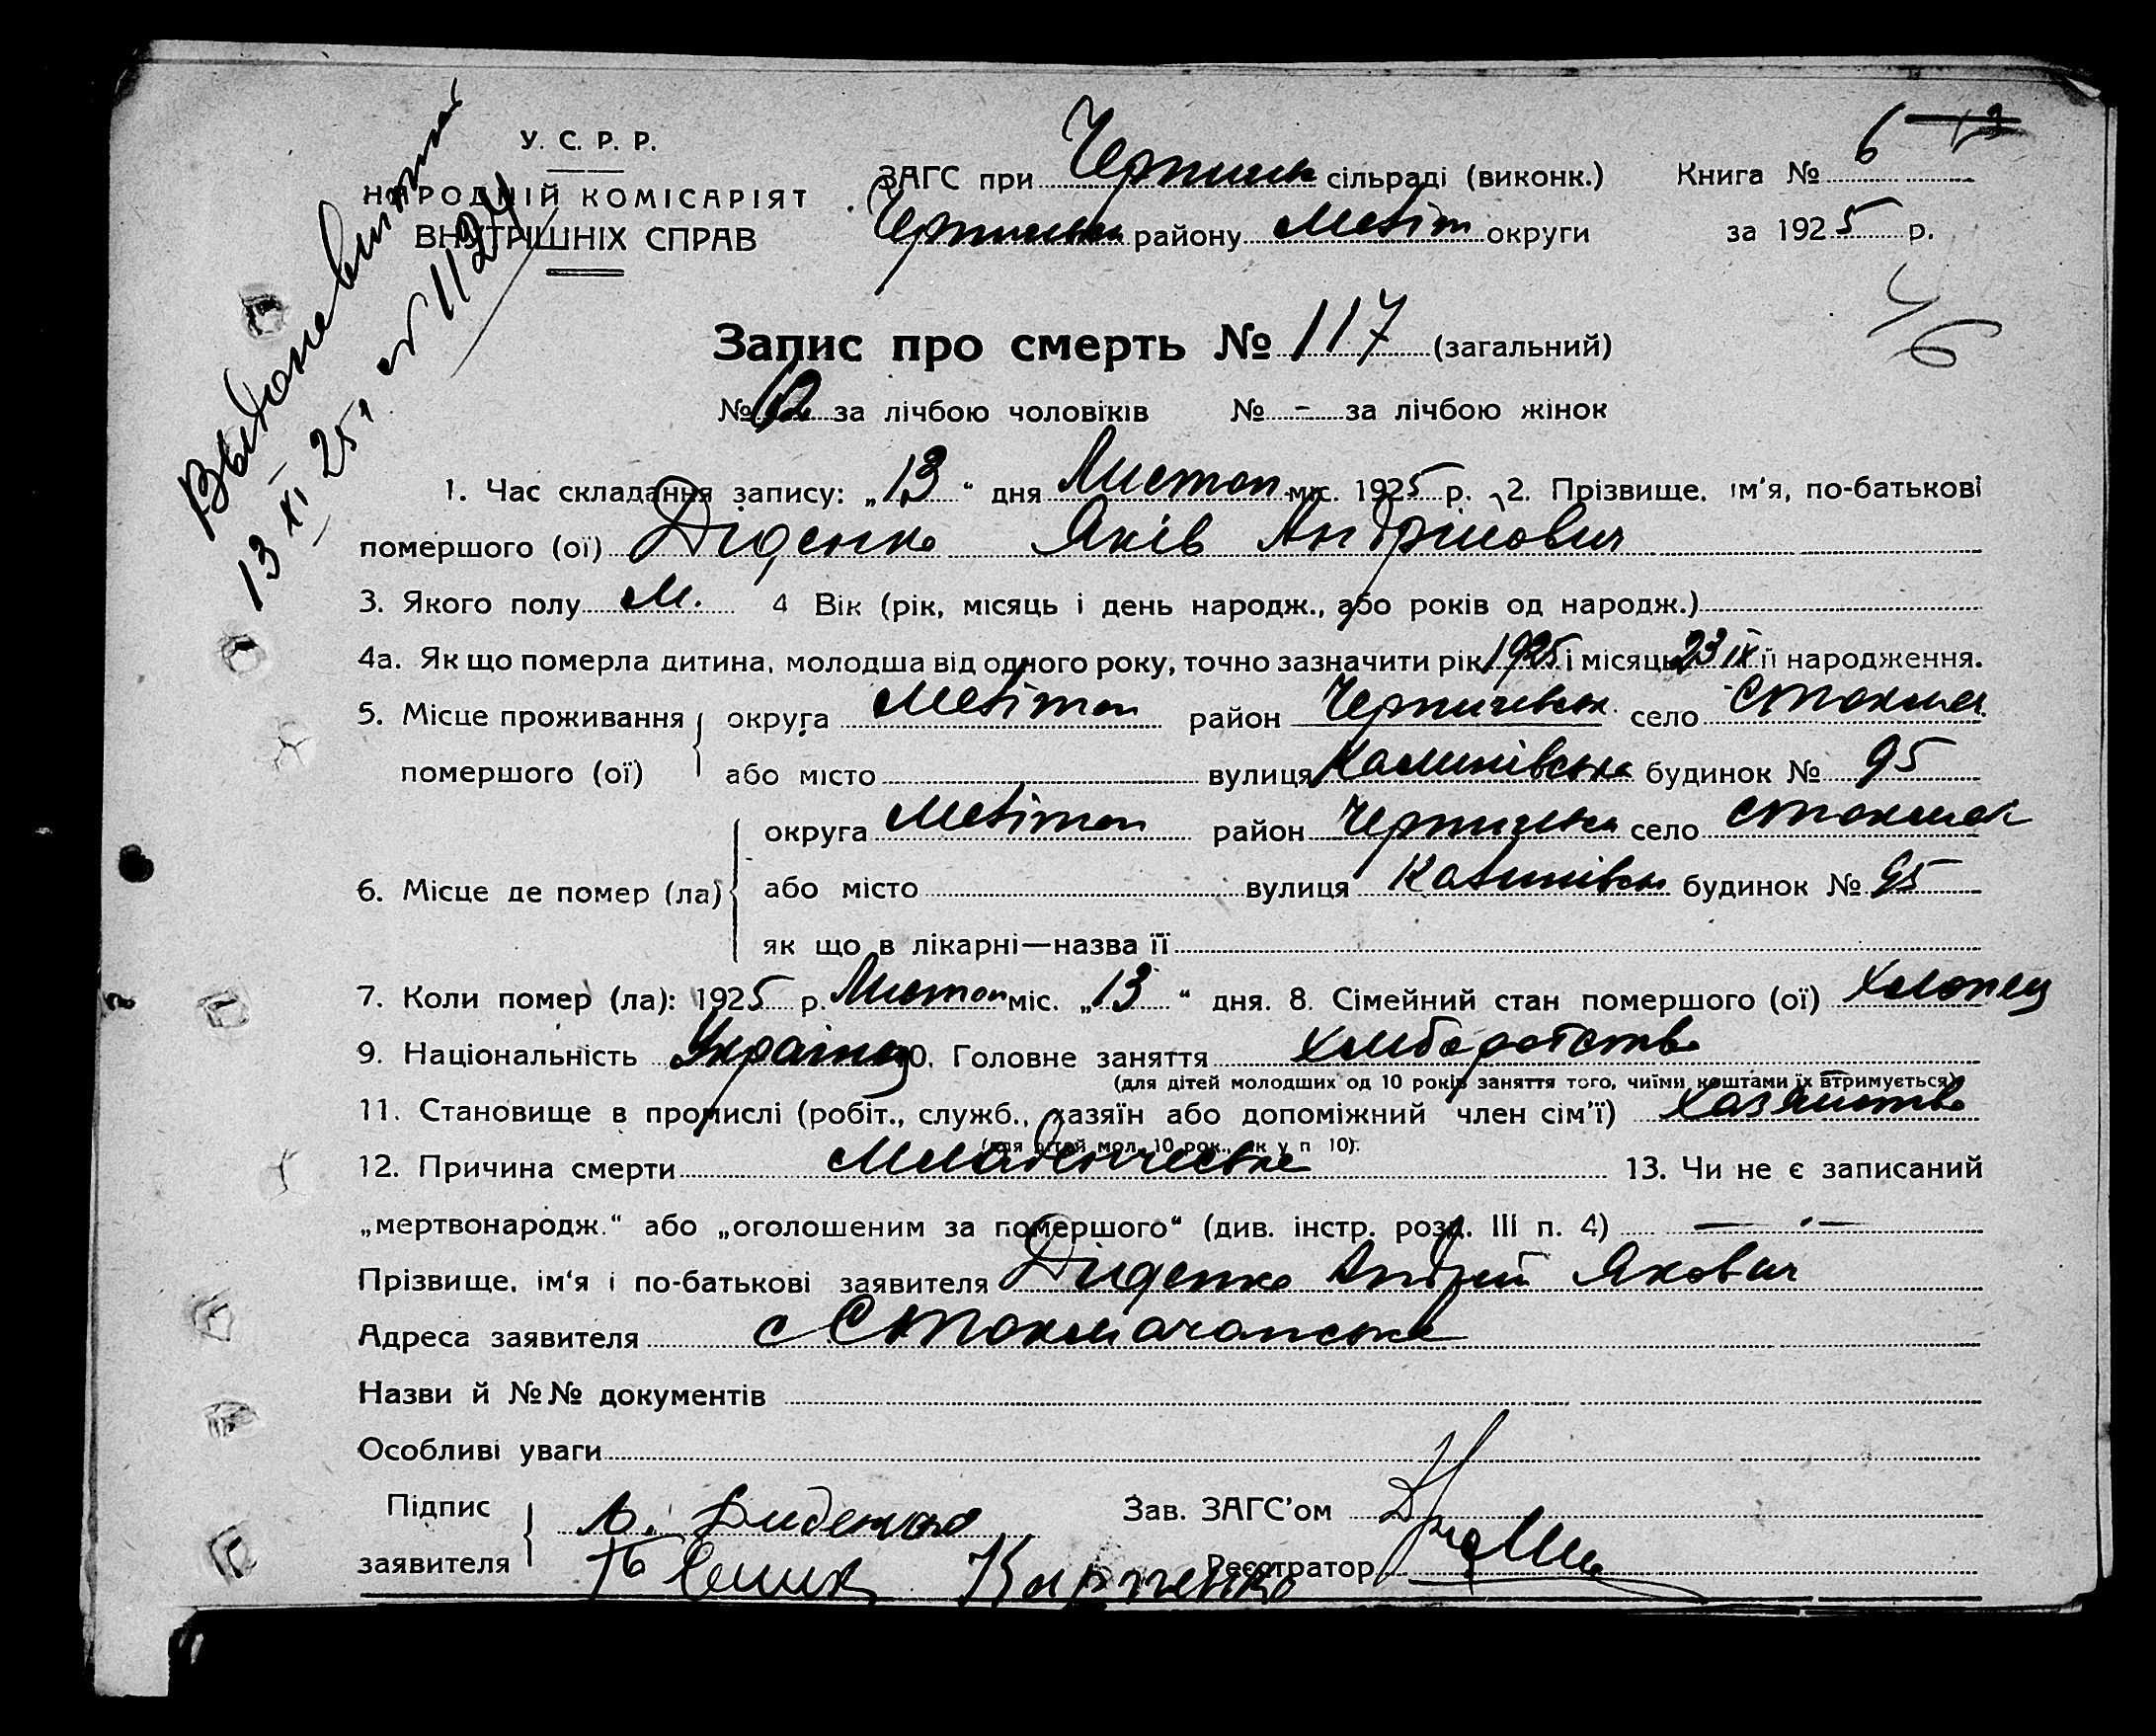 У. С. Р. Р.
НАРОДНІЙ КОМІСАРІЯТ
ВНУТРІШНІХ СПРАВ
ЗАГС при сільраді (виконк.) Книга № 6
району Меліт округи за 1925 р.
13 XI 25 № 1124
Запис про смерть № 117 (загальний)
№ за лічбою чоловіків № - за лічбою жінок
1. Час складання запису: „13“ дня Листоп міс. 1925 р. 2. Прізвище, ім'я, по-батькові
помершого (ої) Діденко Яків Андрійович
3. Якого полу М. 4 Вік (рік, місяць і день народж., або років од народж.)
4а. Як що померла дитина, молодша від одного року, точно зазначити рік 1925 і місяць 23 IX її народження.
5. Місце проживання округа Мелітоп район село Стокмач
помершого (ої) або місто вулиця Калинівська будинок № 95
округа Мелітоп район село
6. Місце де помер (ла) або місто вулиця Калинівськ будинок № 95
як що в лікарні—назва її
7. Коли помер (ла): 1925 р. Листоп міс. „13“ дня. 8. Сімейний стан помершого (ої) хлопец
9. Національність Українец 10. Головне заняття хліборобство
(для дітей молодших од 10 років заняття того, чиїми коштами їх втримується)
11. Становище в промислі (робіт., служб., хазяїн або допоміжний член сім'ї) хазяйство
(для дітей мол. 10 рок., як у п 10).
12. Причина смерти Младенческая 13. Чи не є записаний
„мертвонародж.“ або „оголошеним за помершого“ (див. інстр. розд. III п. 4) — · —
Прізвище, ім'я і по-батькові заявителя Діденко Андрій Якович
Адреса заявителя с
Назви й №№ документів
Особливі уваги
Підпис Диденко Зав. ЗАГС'ом
заявителя Карпенко Реєстратор